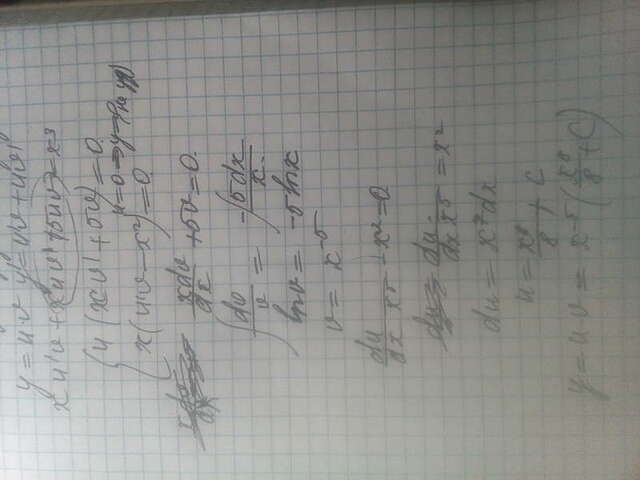 y = u·v y' = u'v + uv'
xu'v + xuv' + 5uv = x³
{ u(xv' + 5v) = 0
x(u'v - x²) = 0
xdv/dx + 5v = 0
∫dv/v = -∫5dx/x
ln v = -5 ln x
v = x⁻⁵
du/dx x⁵ - x² = 0
du/dx x⁵ = x²
du = x⁷dx
u = x⁸/8 + C
y = uv = x⁻⁵(x⁸/8 + C)